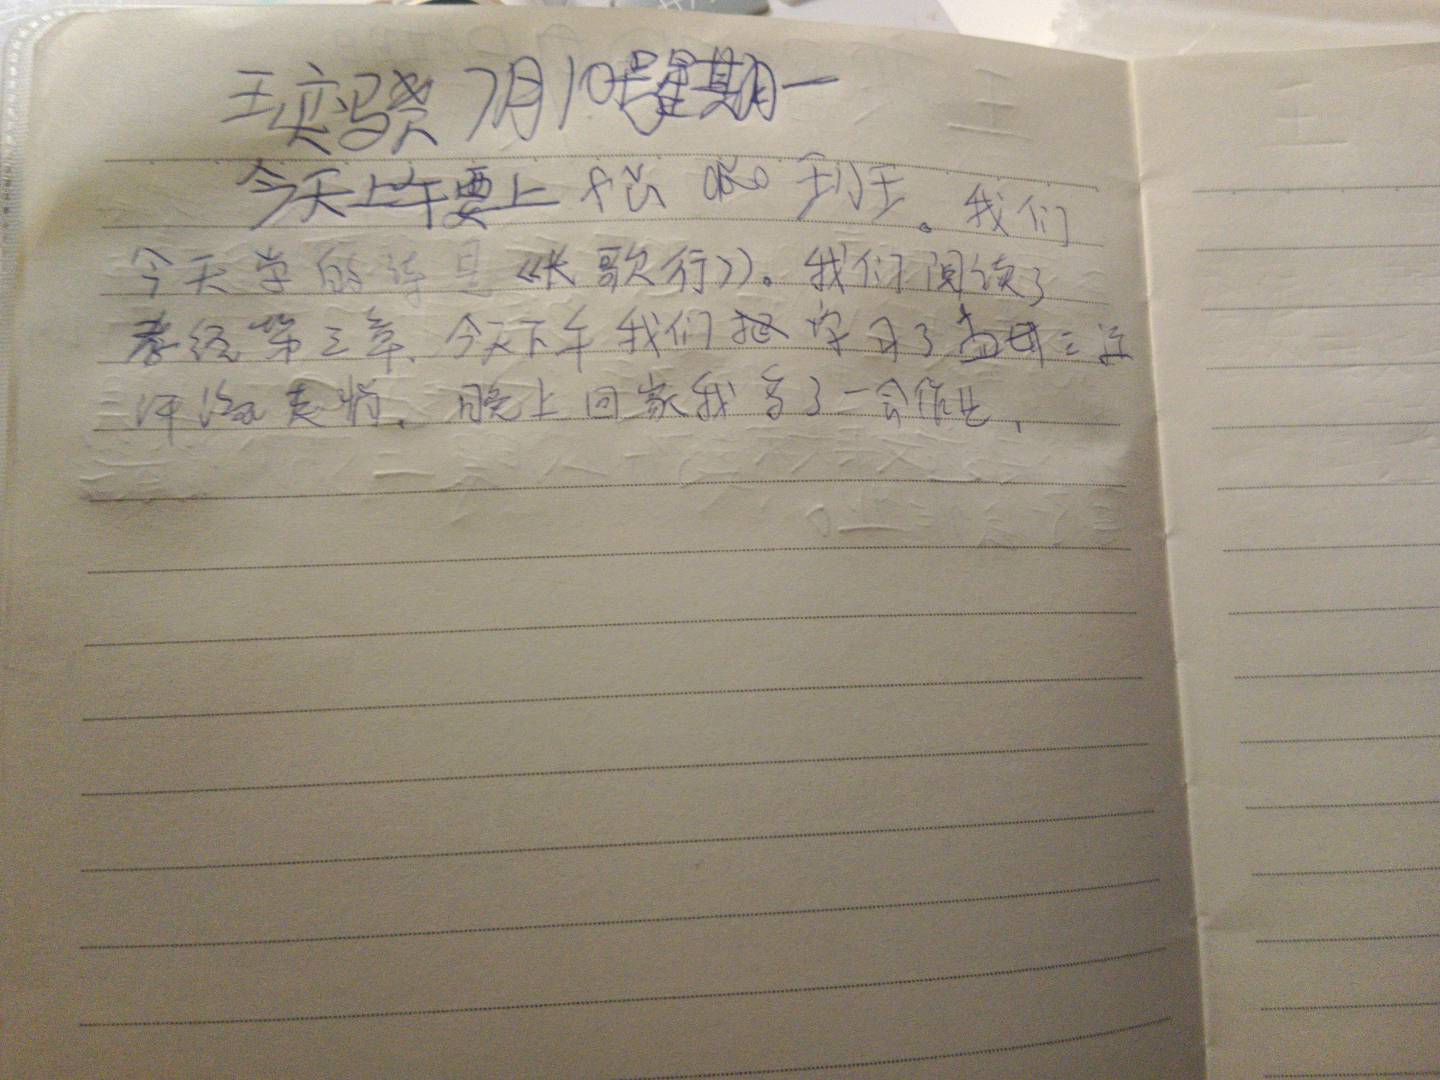 王奕骁 7月10号星期一
今天上午要上 班。我们
今天学的诗是《长歌行》。我们阅读了
孝经第三章、今天下午我们 学习了孟母三迁
。晚上回家我写了一会作业、